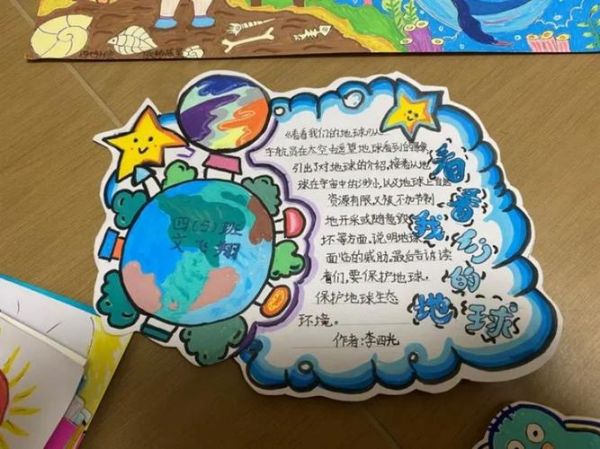 看看我们的地球
《看看我们的地球》从
宇航员在太空遥望地球看到的景象
引出了对地球的介绍,接着从地
球在宇宙中的渺小,以及地球上自然
资源有限,又被不加节制
地开采或随意毁
坏等方面,说明地球
面临的威胁,最后告诉读
者们,要保护地球,
保护地球生态
环境。
作者:李四光
四(5)班
飞翔